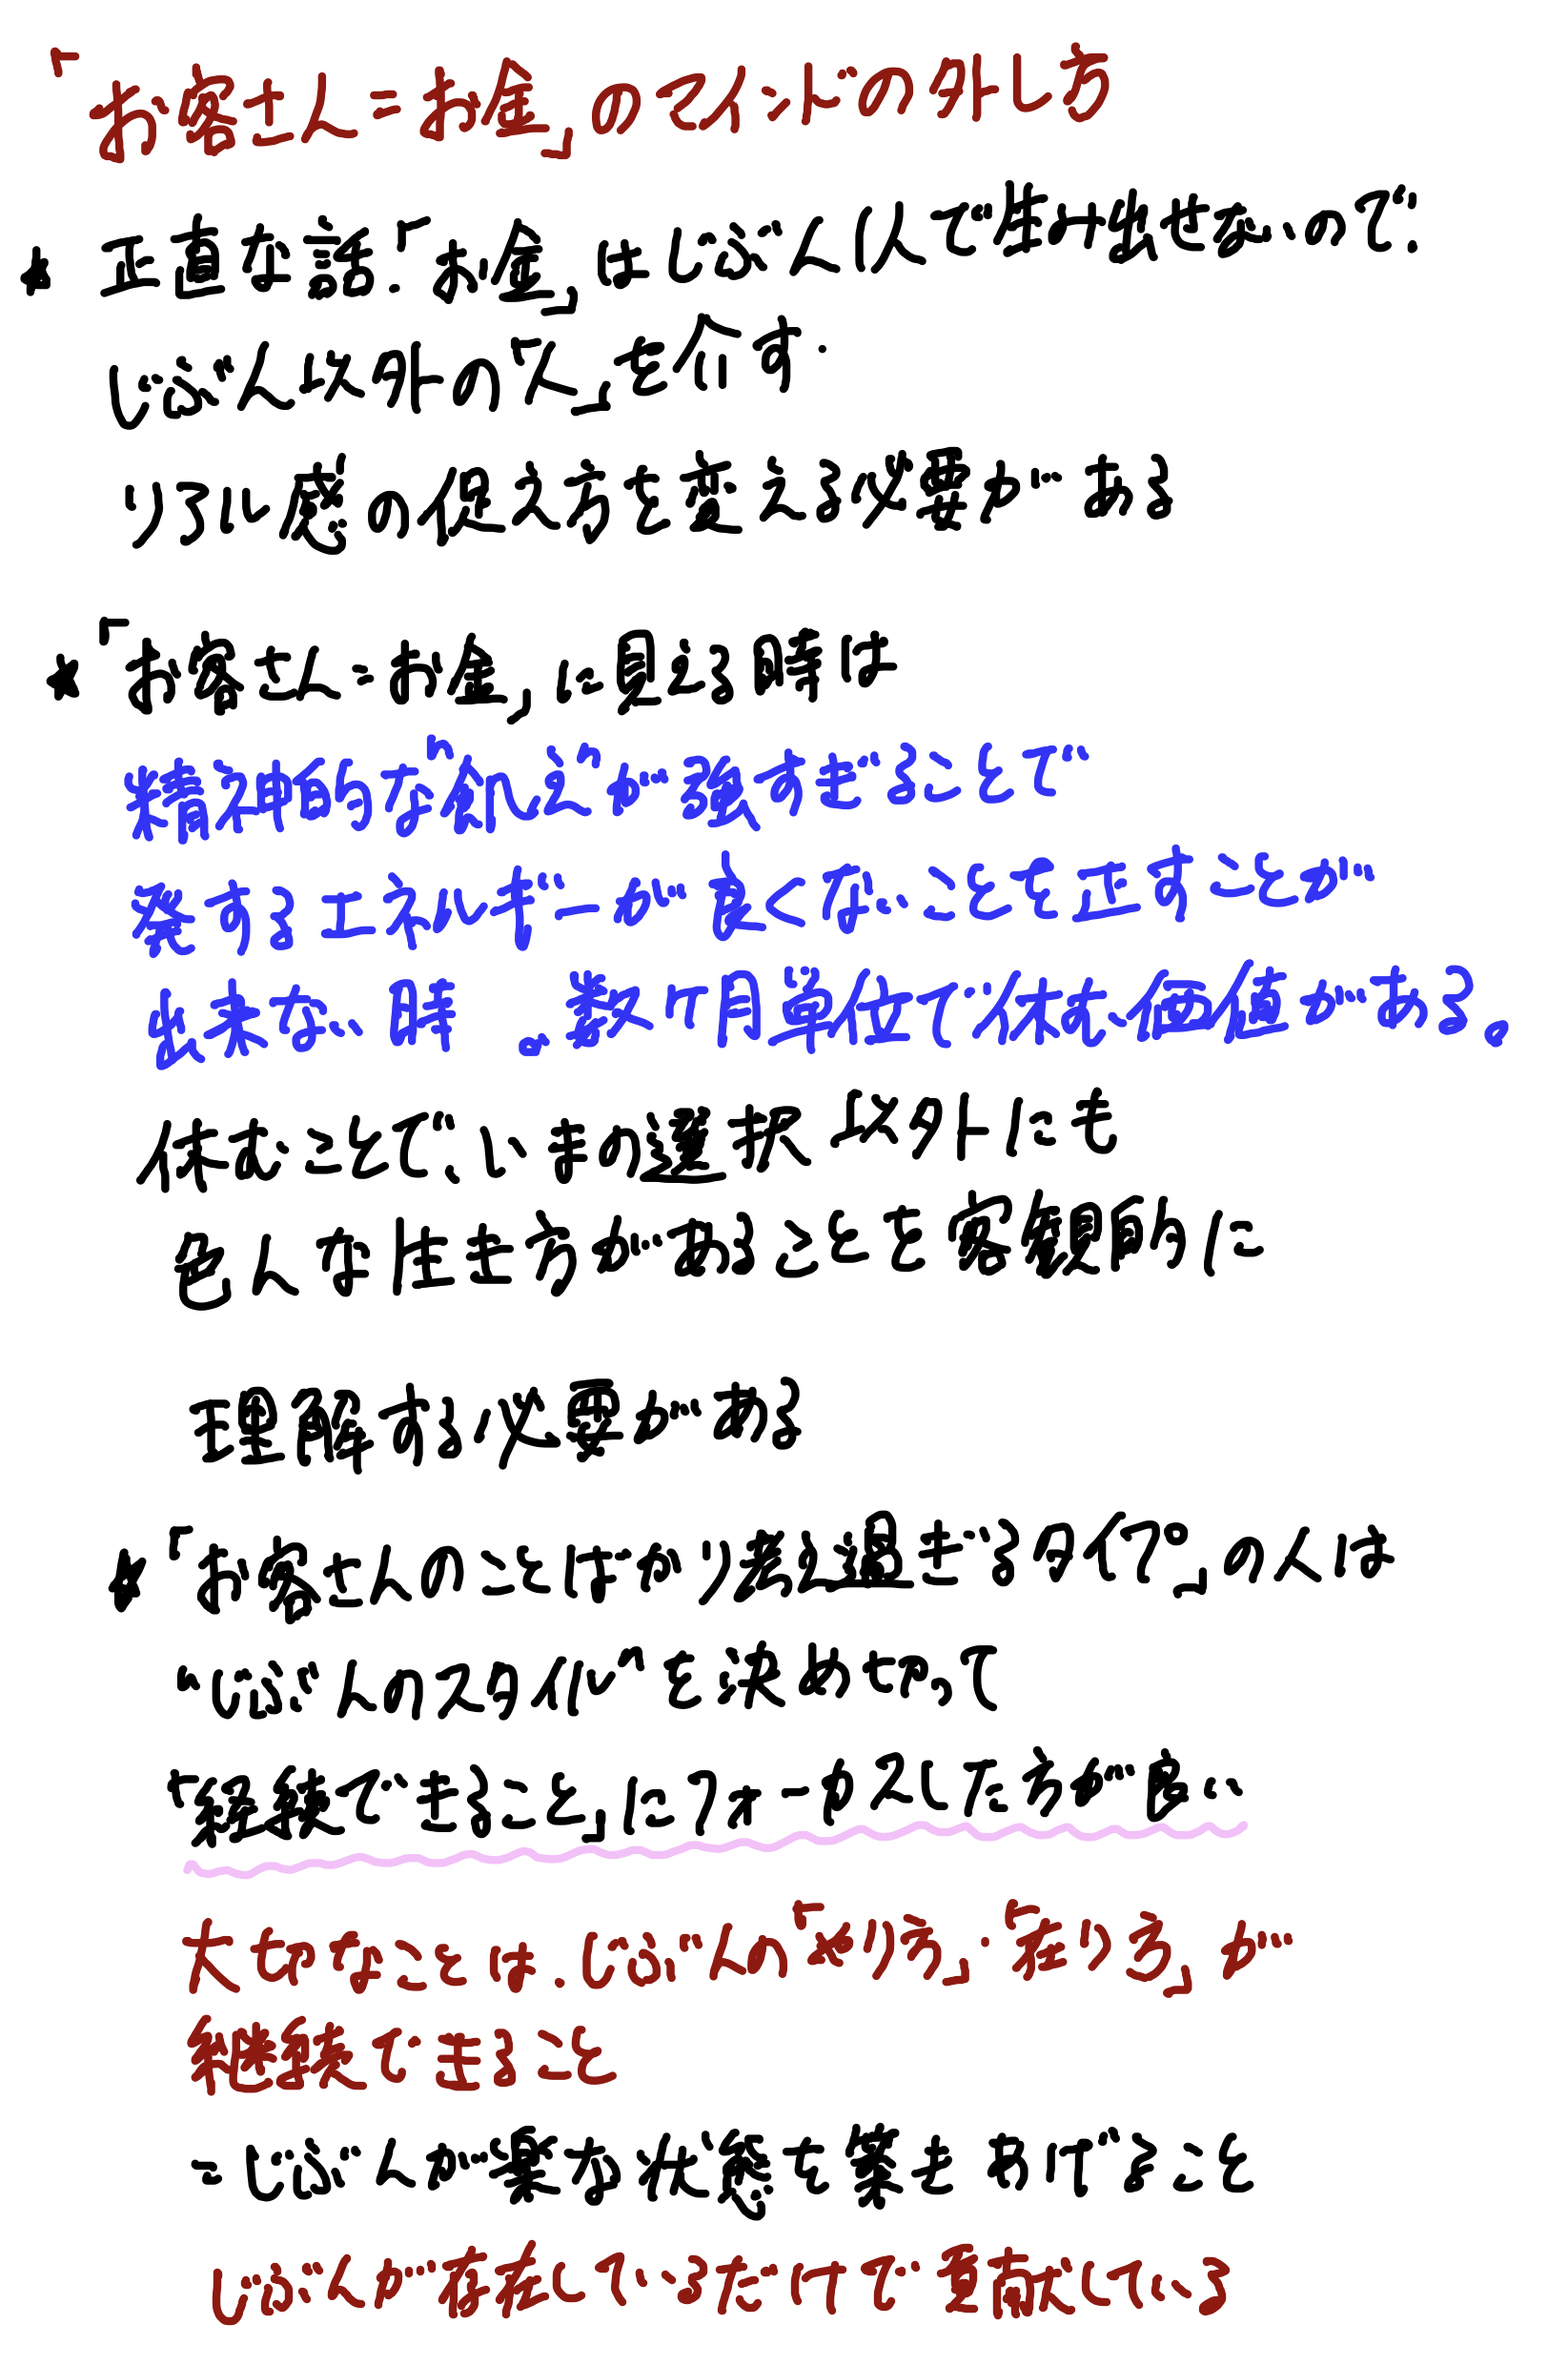 「お客さん=お金」のマインドの外し方
★ 正直な話.「お金」はじぶん1人で生み出せないので、
じぶん以外の「人」を介す.
リアル感の捉え方を変える必要がある
★「お客さん=お金」に見える時は
精神的な「飢え」が強すぎることで
発するエネルギーが良くないことを正すことが
出来ない時。数ヶ月単位で休む価値がある。
休むことで、いまの選択以外にも
色んな生き方があることを客観的に
理解する必要がある
★「お客さんのことばかり考え過ぎるタイプ」の人は
"じぶんのスタイル"を決めちゃって
「継続できること」にフォーカスした方が良い
大切なことは、じぶんの「やり方」・「在り方」が
継続できること
=じぶんが楽な状態を築きあげること
じぶんが存在しているだけで貢献している